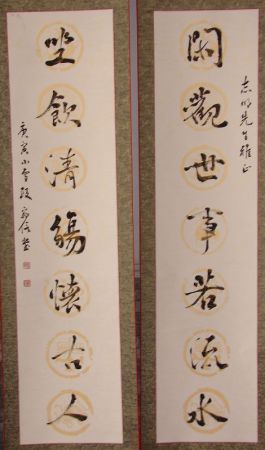 志明先生雅正
閑觀世事若流水
坐飲清觴懷古人
庚寅小雪